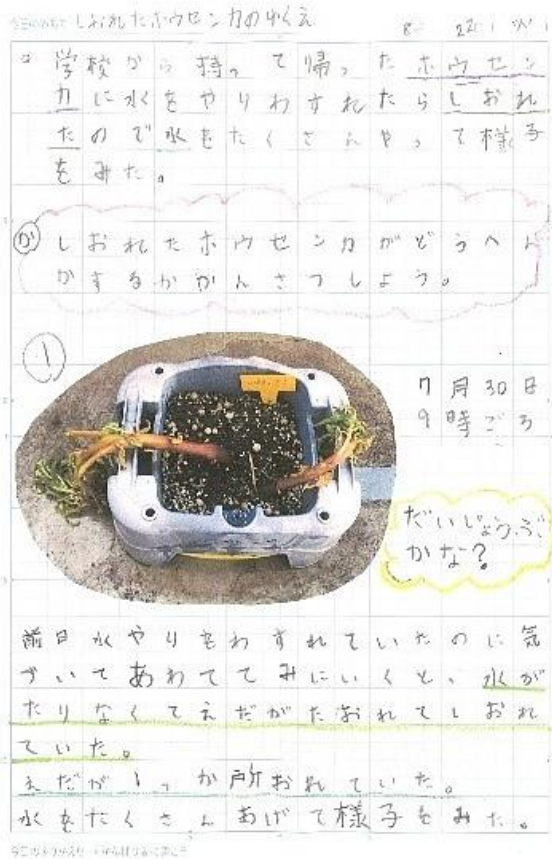 しおれたホウセンカのゆくえ
学校から持って帰ったホウセン
カに水をやりわすれたらしおれ
たので水をたくさんやって様子
をみた。
か
しおれたホウセンカがどうへん
かするかかんさつしよう。
①
7月30日
9時ごろ
だいじょうぶ
かな?
前日水やりをわすれていたのに気
づいてあわててみにいくと、水が
たりなくてえだがたおれてしおれ
ていた。
えだが1っか所おれていた。
水をたくさんあげて様子をみた。